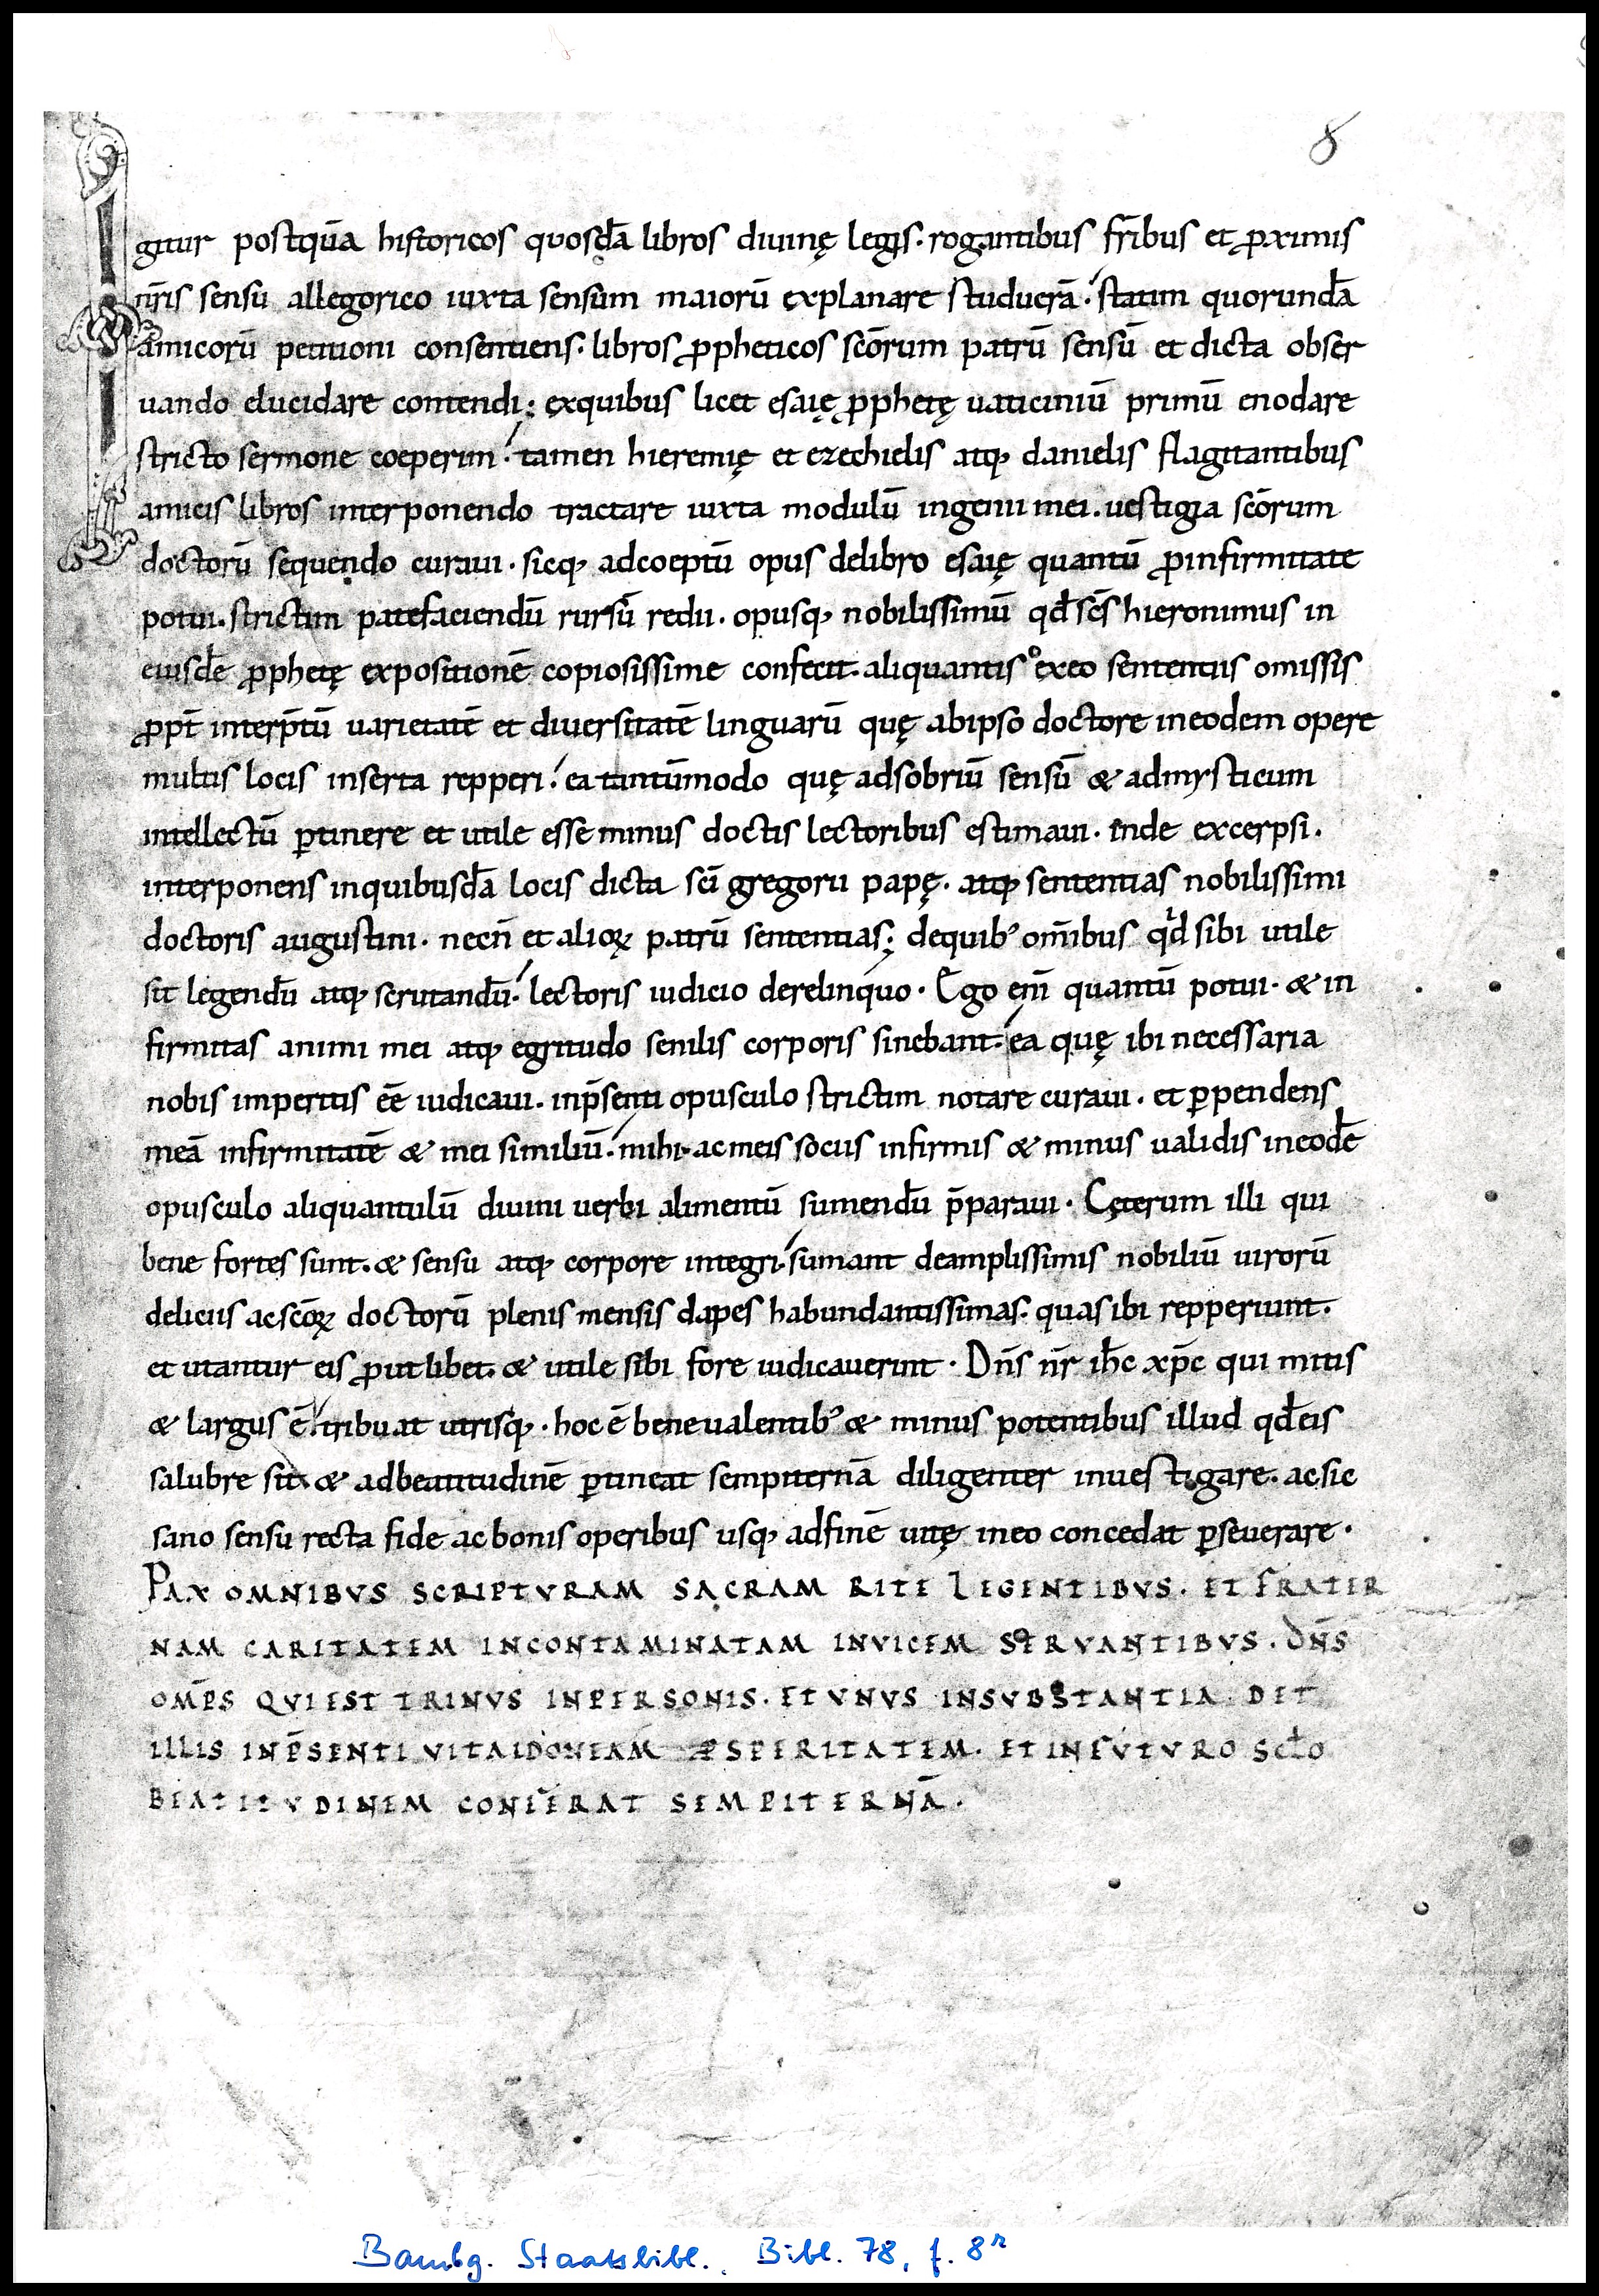 8
Igitur postquā historicos quosdā libros diuinę legis. rogantibus fr̄ibus et ꝓximis
nr̄is sensu allegorico iuxta sensum maiorū explanare studuerā. statim quorundā
amicorū petitioni consentiens. libros ꝓpheticos scōrum patrū sensū et dicta obser
uando elucidare contendi; exquibus licet esaię ꝓphetę uaticiniū primū enodare
stricto sermone coeperim. tamen hieremię et ezechielis atq; danielis flagitantibus
amicis libros interponendo tractare iuxta modulū ingenii mei. uestigia scōrum
doctorū sequendo curaui. sicq; adcoeptū opus delibro esaię quantū ꝓinfirmitate
potui. strictim patefaciendū rursū redii. opusq; nobilissimū qd̄ scs̄ hieronimus in
eiusdē ꝓphetę expositionē copiosissime confecit. aliquantis exeo sententiis omissis
ꝓpt̄ interp̄tū uarietatē et diuersitatē linguarū quę abipso doctore ineodem opere
multis locis inserta repperi. ea tantūmodo quę adsobriū sensū & admysticum
intellectū ꝑtinere et utile esse minus doctis lectoribus estimaui. inde excerpsi.
interponens inquibusdā locis dicta sc̄i gregorii papę. atq; sententias nobilissimi
doctoris augustini. necn̄ et alioꝝ patrū sententias; dequib; om̄ibus qd sibi utile
sit legendū atq; scrutandū. lectoris iudicio derelinquo. Ego eni̅ quantū potui. & in
firmitas animi mei atq; egritudo senilis corporis sinebant. ea quę ibi necessaria
nobis imperitis eē iudicaui. inp̄senti opusculo strictim notare curaui. et ꝑpendens
meā infirmitatē & mei similiū. mihi. ac meis sociis infirmis & minus ualidis ineodē
opusculo aliquantulū diuini uerbi alimentū sumendū p̄paraui. Cęterum illi qui
bene fortes sunt. & sensu atq; corpore integri. sumant deamplissimis nobiliū uirorū
deliciis ac scōꝝ doctorū plenis mensis dapes habundantissimas. quas ibi repperiunt.
et utantur eis ꝓut libet. & utile sibi fore iudicauerint. Dn̄s nr̄ ih̄c xp̄c qui mitis
& largus ē. tribuat utrisq;. hoc ē bene ualentib; & minus potentibus illud qd̄ eis
salubre sit. & adbeatitudinē ꝑtineat sempiternā diligenter inuestigare. ac sic
sano sensu recta fide ac bonis operibus usq; adfinē uitę ineo concedat ꝑseuerare.
PAX OMNIBVS SCRIPTVRAM SACRAM RITE LEGENTIBVS. ET FRATER
NAM CARITATEM INCONTAMINATAM INVICEM SERVANTIBVS. DN̄S
OMP̄S QVI EST TRINVS INPERSONIS. ET VNVS INSVBSTANTIA. DET
ILLIS INP̄SENTI VITA IDONEAM ꝒSPERITATEM. ET INFVTVRO SCLO
BEATITVDINEM CONFERAT SEMPITERNĀ.
Bambg. Staatsbibl. Bibl. 78, f. 8ʳ